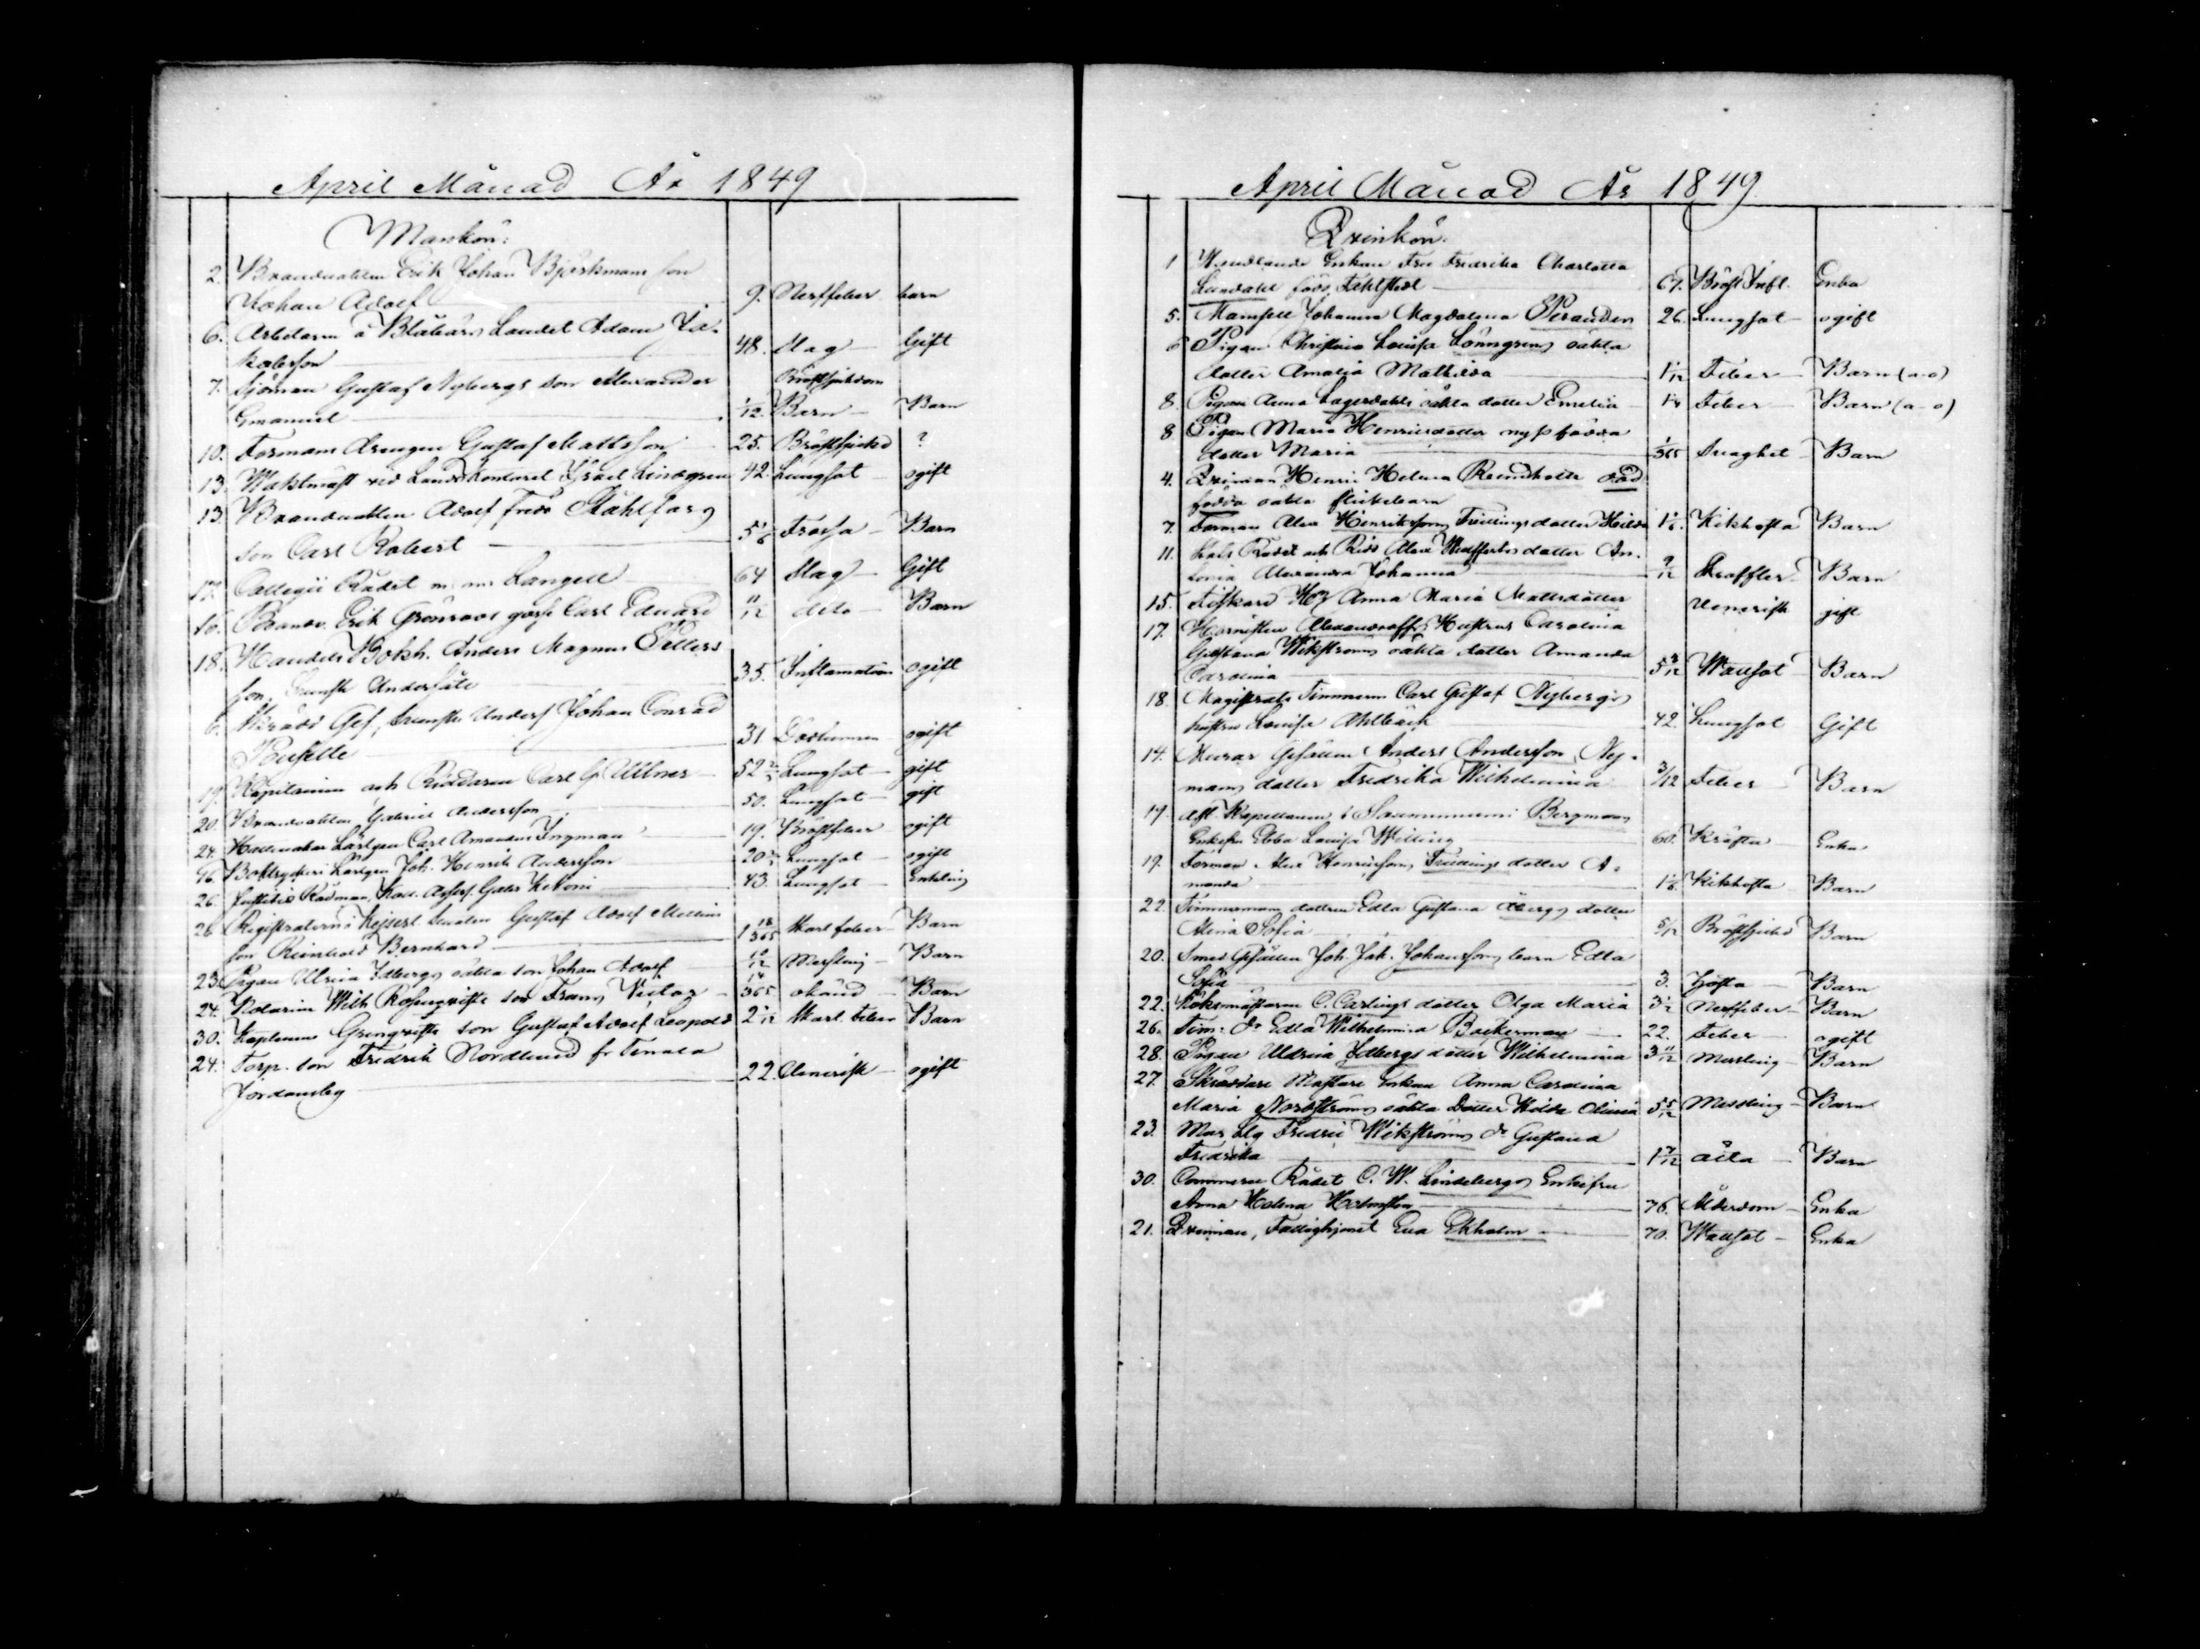 April Månad År 1849
Mankön:
2. Brandvakten Erik Johan Björkmans son
Johan Adolf 9. Nerffeber barn
6. Arbetaren å Blåbärs Landet Adam Ja-
kobsson 48. Slag Gift
7. Sjöman Gustaf Nybergs son Alexander Bröstsjukdom
Emanuel 1/12. Barn Barn
10. Formans drengen Gustaf Mattsson 25. Bröstsjukd ?
13. Waktmäst vid Lands Kontoret Israel Lindgren 42. Lungsot ogift
13. Brandvakten Adolf Fredr Ståhlfars
son Carl Robert 5 1/6 Frossa Barn
17. Collegii Rådet m m Langell 64 Slag Gift
16. Brandv. Erik Grönroos gosse Carl Eduard 11/12 dito Barn
18. Handels Bokh. Anders Magnus Petters
son, Svensk Undersåte 35. Inflamation ogift
6. Skrädd Ges, Svensk Unders Johan Conrad
31 ogift
19. Kapitainen och Riddaren Carl G. Ullner 52 Lungsot gift
20. Brandvakten Gabriel Andersson 50. Lungsot gift
24. Hattmakar Lärlgen Carl Amandus Ingman 19. Bröstfeber ogift
16. Boktryckeri Lärlgen Joh. Henrik Andersson 20 Lungsot ogift
26. Justitiæ Rådman, Koll. Assess. Gabr Ketoni 43. Lungsot Enkling
26 Registratorns i Kejserl. Senaten Gustaf Adolf Mellins
son Reinhold Bernhard 1 18/365 Skarl feber Barn
23. Pigan Ulrica Idbergs oäkta son Johan Adolf 10/12 Messling Barn
24. Notarien Wilh Rosenqvists son Frans Victor 14/365 okänd Barn
30. Kaptenens Grenqvists son Gustaf Adolf Leopold 2 1/12 Skarl. feber Barn
24. Torp. son Fredrik Nordlund fr Tenala
22. Venerisk ogift
April Månad År 1849.
Qvinkön.
1 Handlande Enkan Fru Fredrika Charlotta
Lundahl född Fahlstedt 67. Bröst Infl. Enka
5. Mamsell Johanna Magdalena Perander 26. Lungsot ogift
6 Pigan Christina Lovisa Lönngrens oäkta
dotter Amalia Mathilda 1 1/12 Feber Barn (a-o)
8. Pigan Anna Lagerdahls oäkta dotter Emelia 1/4 Feber Barn (a-o)
8 Pigan Maria Henricsdotter nyss födda
dotter Maria 1/365 Svaghet Barn
4. Qvinnan Henr. Helena Reinholts död
födda oäkta flickebarn
7. Forman Alex Henrikssons Tvillings dotter Hilda 1 1/6. Kikhosta Barn
11. Kols Rådet och Ridd Alex dotter An-
tonia Alexandra Johanna 9/12 Skroffler Barn
15. Anna Maria Mattsdotter Venerisk gift
17. Hornisten Alexandroffs Hustrus Carolina
Gustava Wikströms oäkta dotter Amanda
Carolina 5 Wattsot Barn
18. Magistrats Timmerm Carl Gustaf Nybergs
hustru Lovisa Ahlbäck 42. Lungsot Gift
14. Murar Gesällen Anders Andersson Ny-
mans dotter Fredrika Wilhelmina 3/12 Feber Barn
17. aft. Kapellanen i Sammanumi Bergmans
Enkefru Ebba Lovisa Welling 60. Kräfta Enka
19. Forman Alex Henricssons Tvillings dotter A-
manda 1 1/6. Kikhosta Barn
22. Timmerman dottren Edla Gustava Åbergs dotter
Alma Sofia 5/12 Bröstsjukd Barn
20. Smed Gesällen Joh. Jak. Johanssons barn Edla
Sofia 3. Hosta Barn
22. Köksmästaren C. Carlings dotter Olga Maria 3 1/2 Nerffeber Barn
26. Tim: dr Edla Wilhelmina Bäckerman 22. Feber ogift
28. Pigan Uldrica Idbergs dotter Wilhelmina 3 11/12 Messling Barn
27. Skräddare Mästare Enkan Anna Carolina
Maria Nordströms oäkta Dotter Hilda Olivia 5 5/12 Messling Barn
23. Fredric Wikströms dr Gustava
Fredrika 1 7/12 dito Barn
30. Commerce Rådet C. W. Lindebergs Enkefru
Anna Helena Holmsten 76. Ålderdom Enka
21. Qvinnan, Fattighjonet Eva Ekholm 70. Wattsot Enka